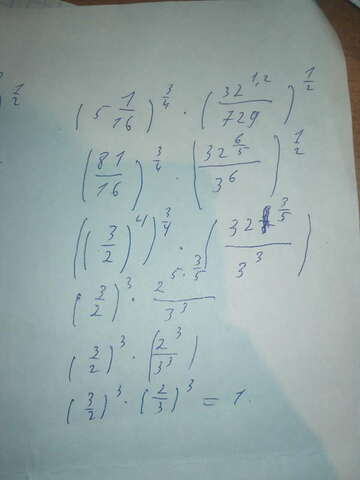 (5 1/16)^(3/4) · (32^(1,2)/729)^(1/2)
(81/16)^(3/4) · (32^(6/5)/3^6)^(1/2)
((3/2)^4)^(3/4) · (32^(3/5)/3^3)
(3/2)^3 · 2^(5·3/5)/3^3
(3/2)^3 · (2^3/3^3)
(3/2)^3 · (2/3)^3 = 1.